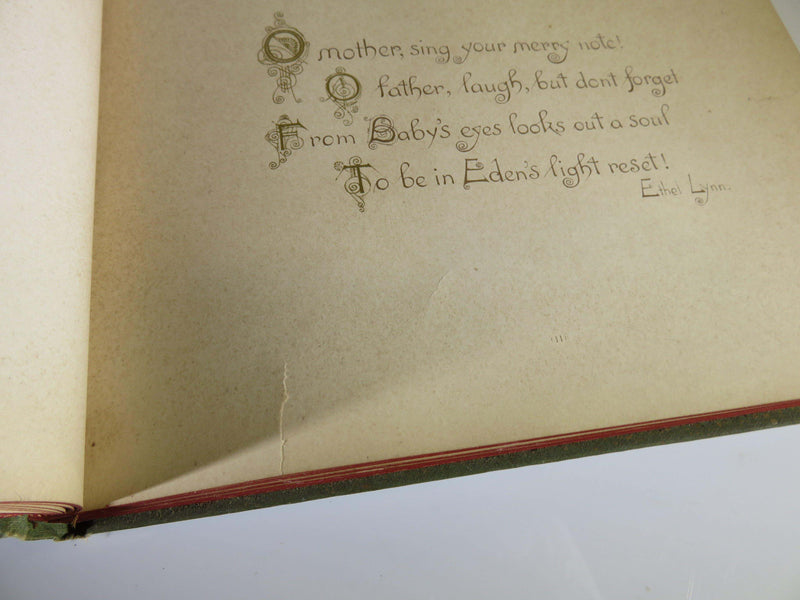 O mother, sing your merry note!
O father, laugh, but dont forget
From Baby's eyes looks out a soul
To be in Eden's light reset!
Ethel Lynn.